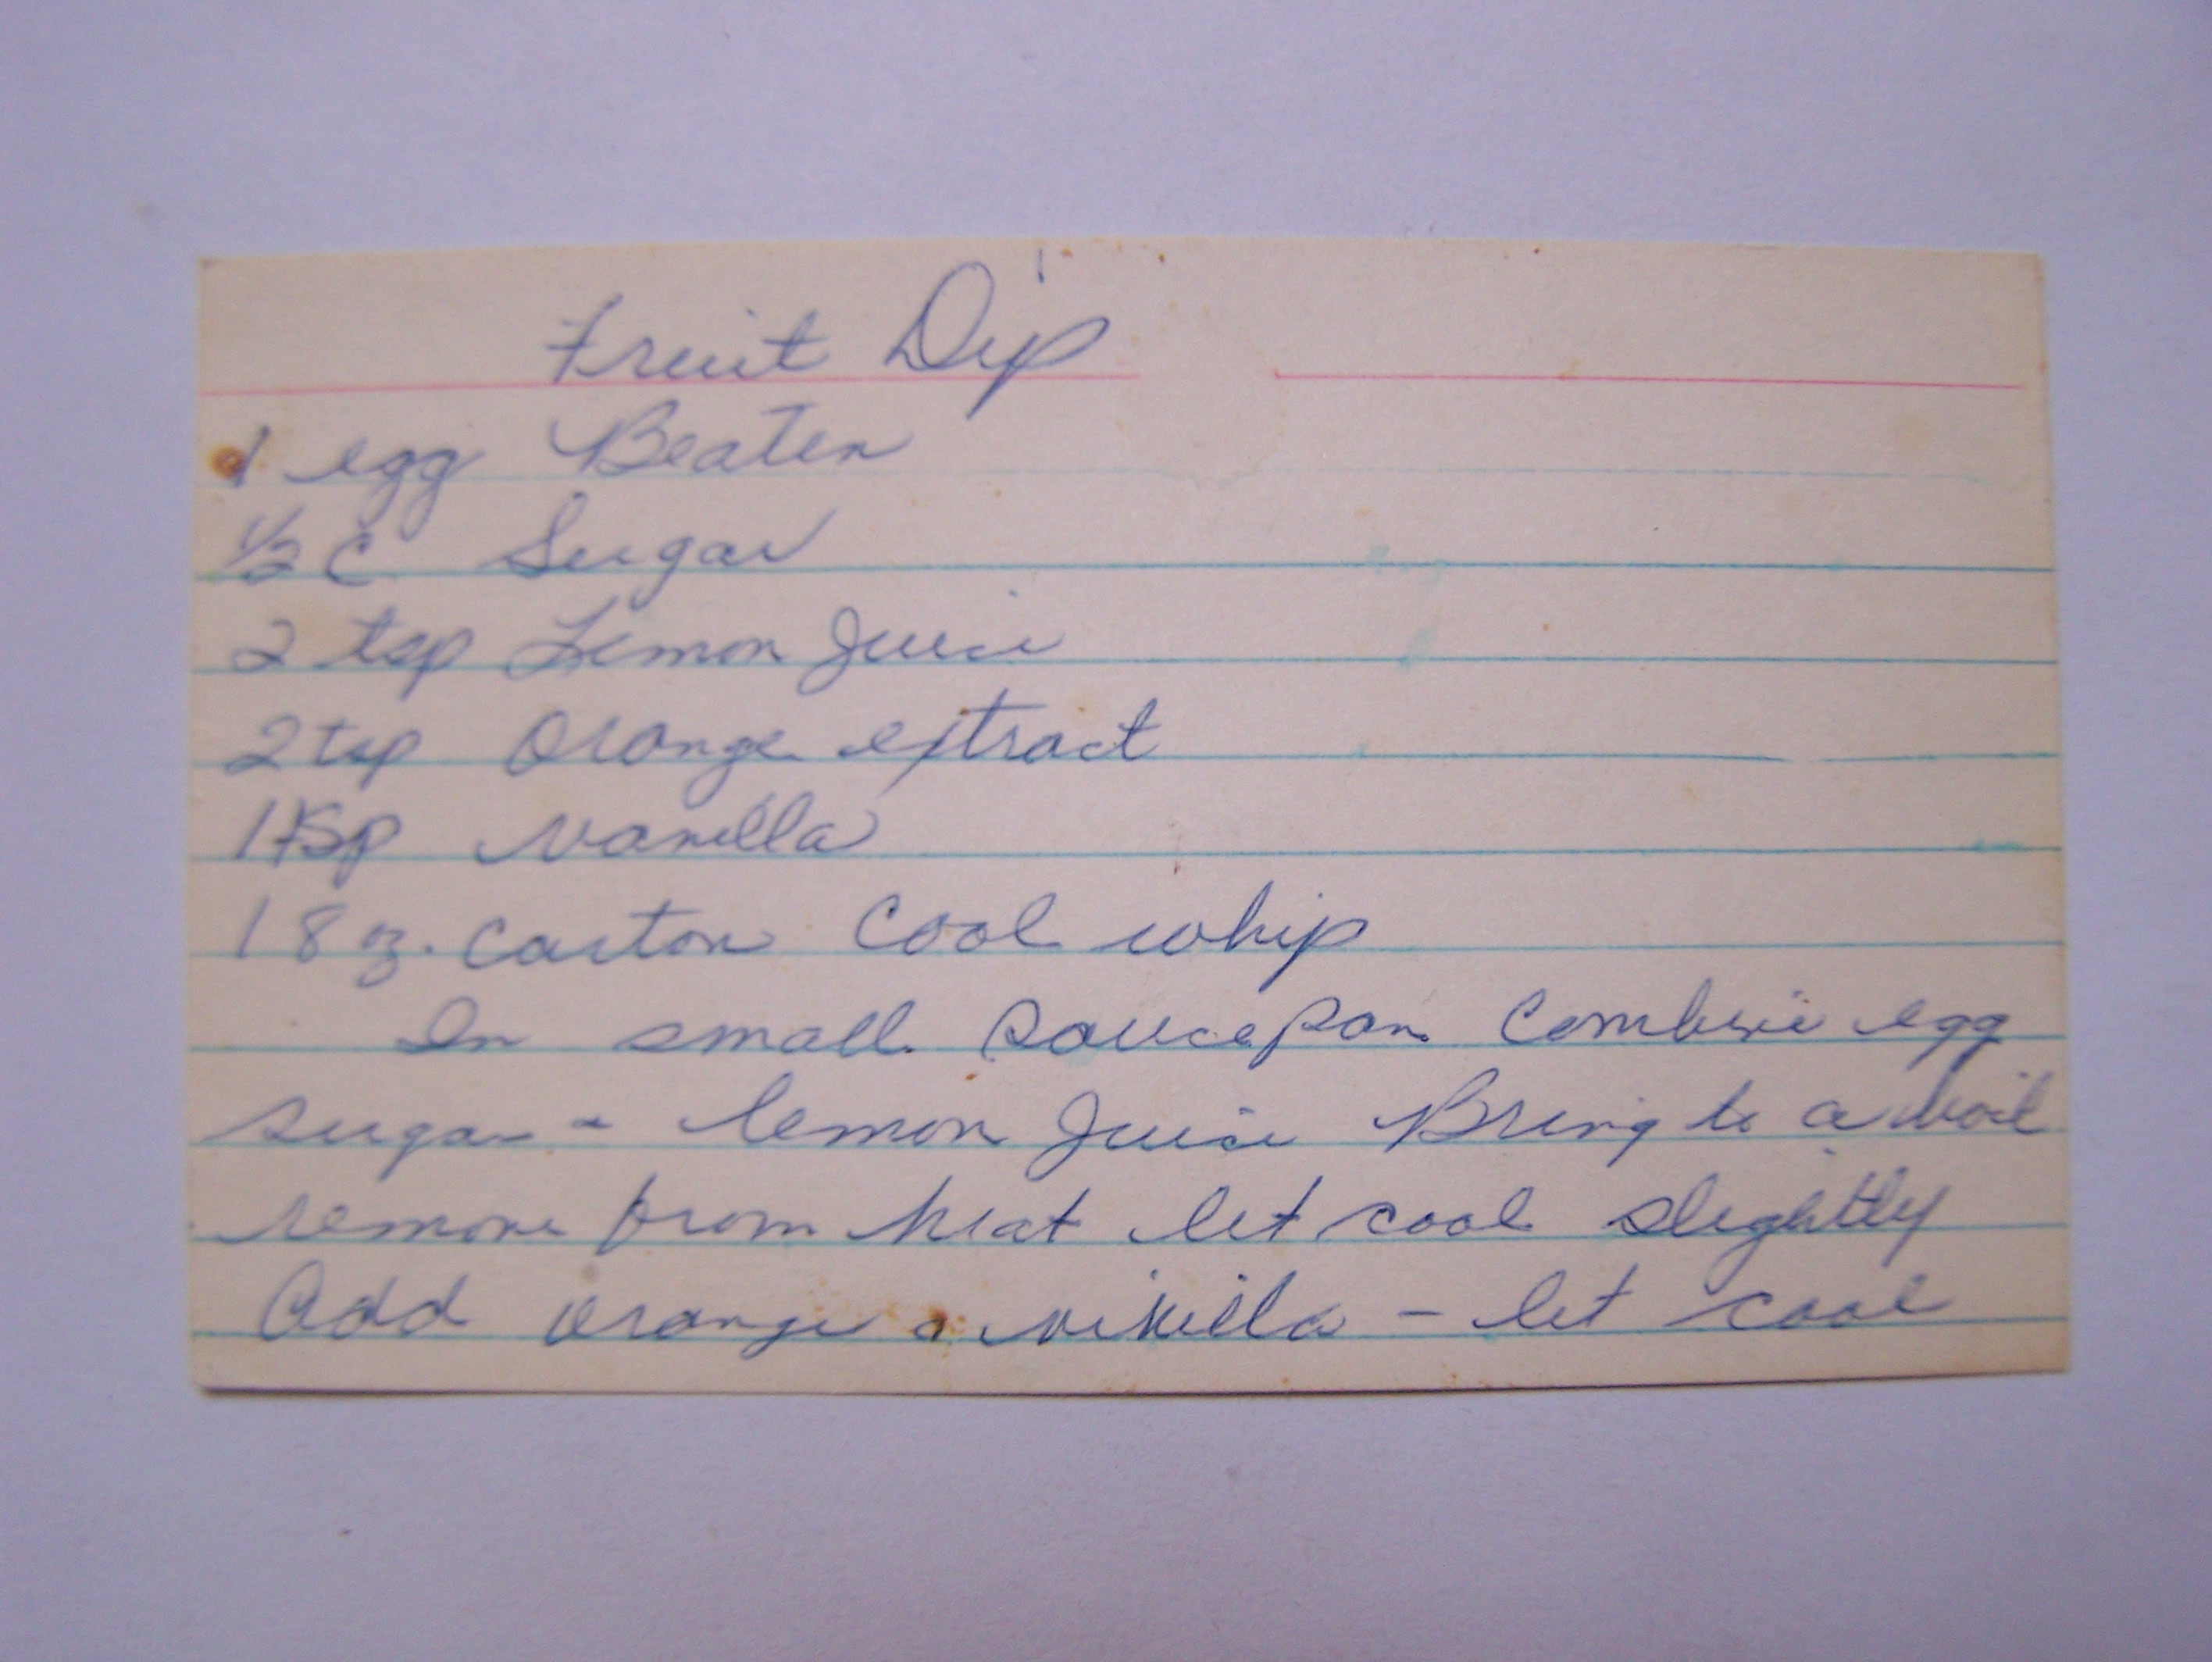 Fruit Dip
1 egg Beaten
1/2 C Sugar
2 tsp Lemon Juice
2 tsp Orange extract
1 tsp vanilla
1 8 oz. carton Cool whip
In small saucepan Combine egg
sugar & lemon Juice Bring to a boil
remove from heat let cool slightly
Add orange & vinilla - let cool